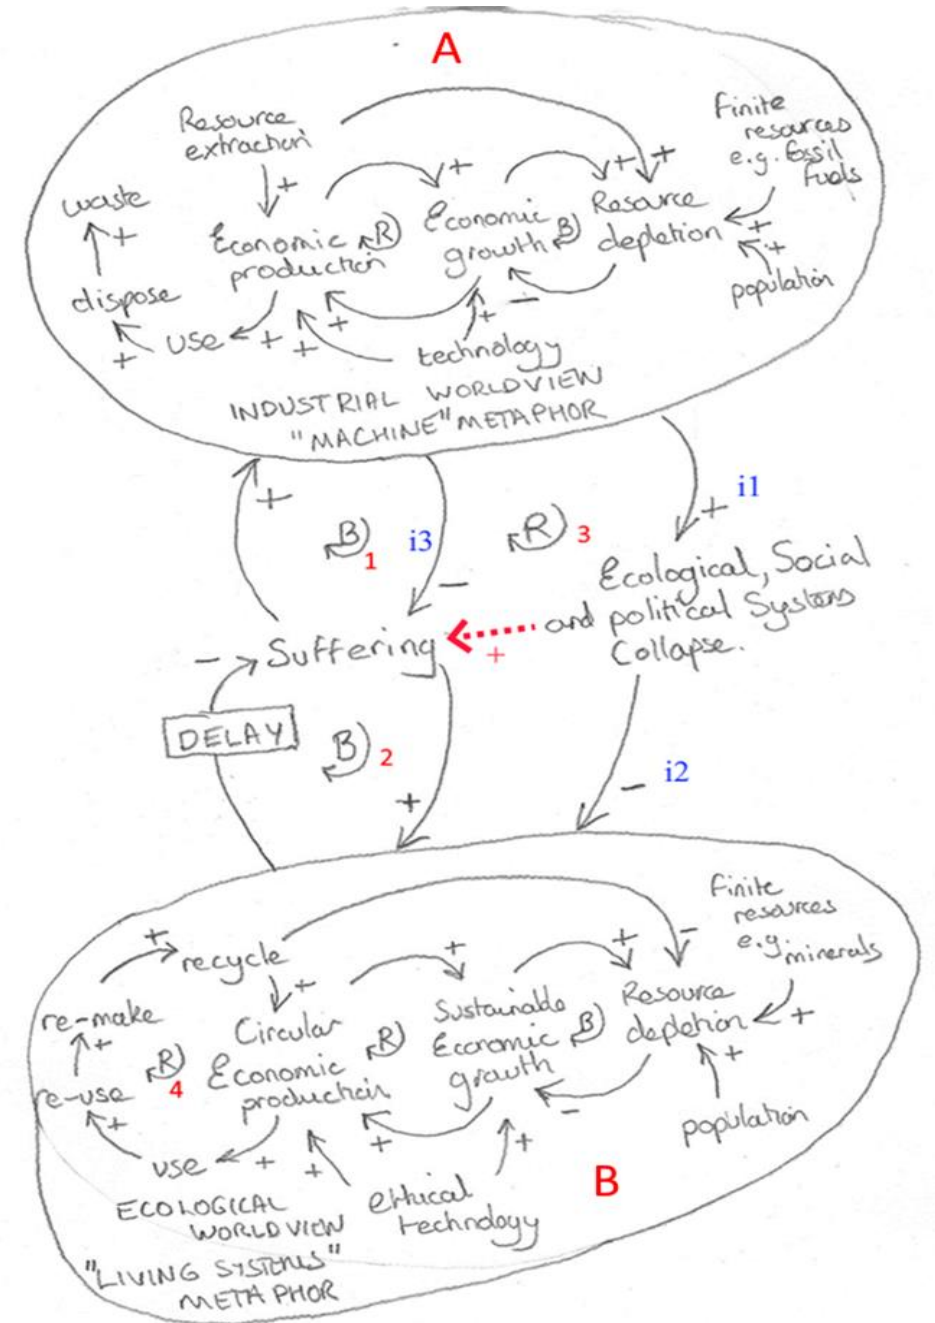 A
Resource
extraction
+
Finite
resources
e.g. fossil
fuels
waste
+
+
+
+
Economic
production
R
Economic
growth
B
Resource
depletion
+
+
population
dispose
+
use
+
+
+
+
-
technology
INDUSTRIAL WORLDVIEW
"MACHINE" METAPHOR
+
B
1
i3
-
R
3
i1
+
Ecological, Social
and political Systems
Collapse.
+
Suffering
-
DELAY
B
2
+
i2
-
Finite
resources
e.g. minerals
+
recycle
+
+
+
-
re-make
+
Circular
Economic
production
R
Sustainable
Economic
growth
B
Resource
depletion
+
+
R
4
re-use
+
use
+
+
+
+
-
population
ethical
technology
B
ECOLOGICAL
WORLDVIEW
"LIVING SYSTEMS"
METAPHOR